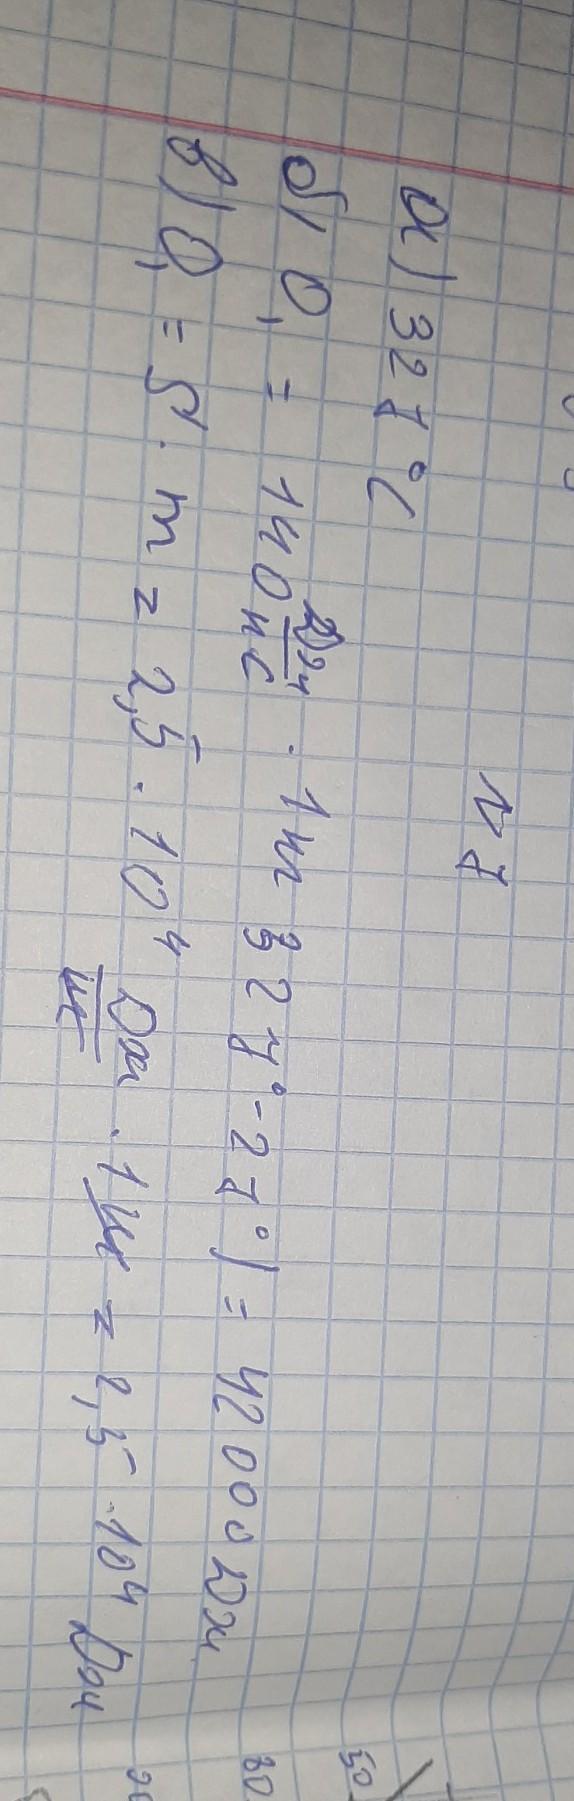 №7
а) 327°С
б) Q₁ = 140 Дж/кгС · 1кг 327° - 27°) = 42000 Дж
в) Q₁ = 5 · m = 2,5 · 10⁴ Дж/кг · 1кг = 2,5 · 10⁴ Дж
50
80